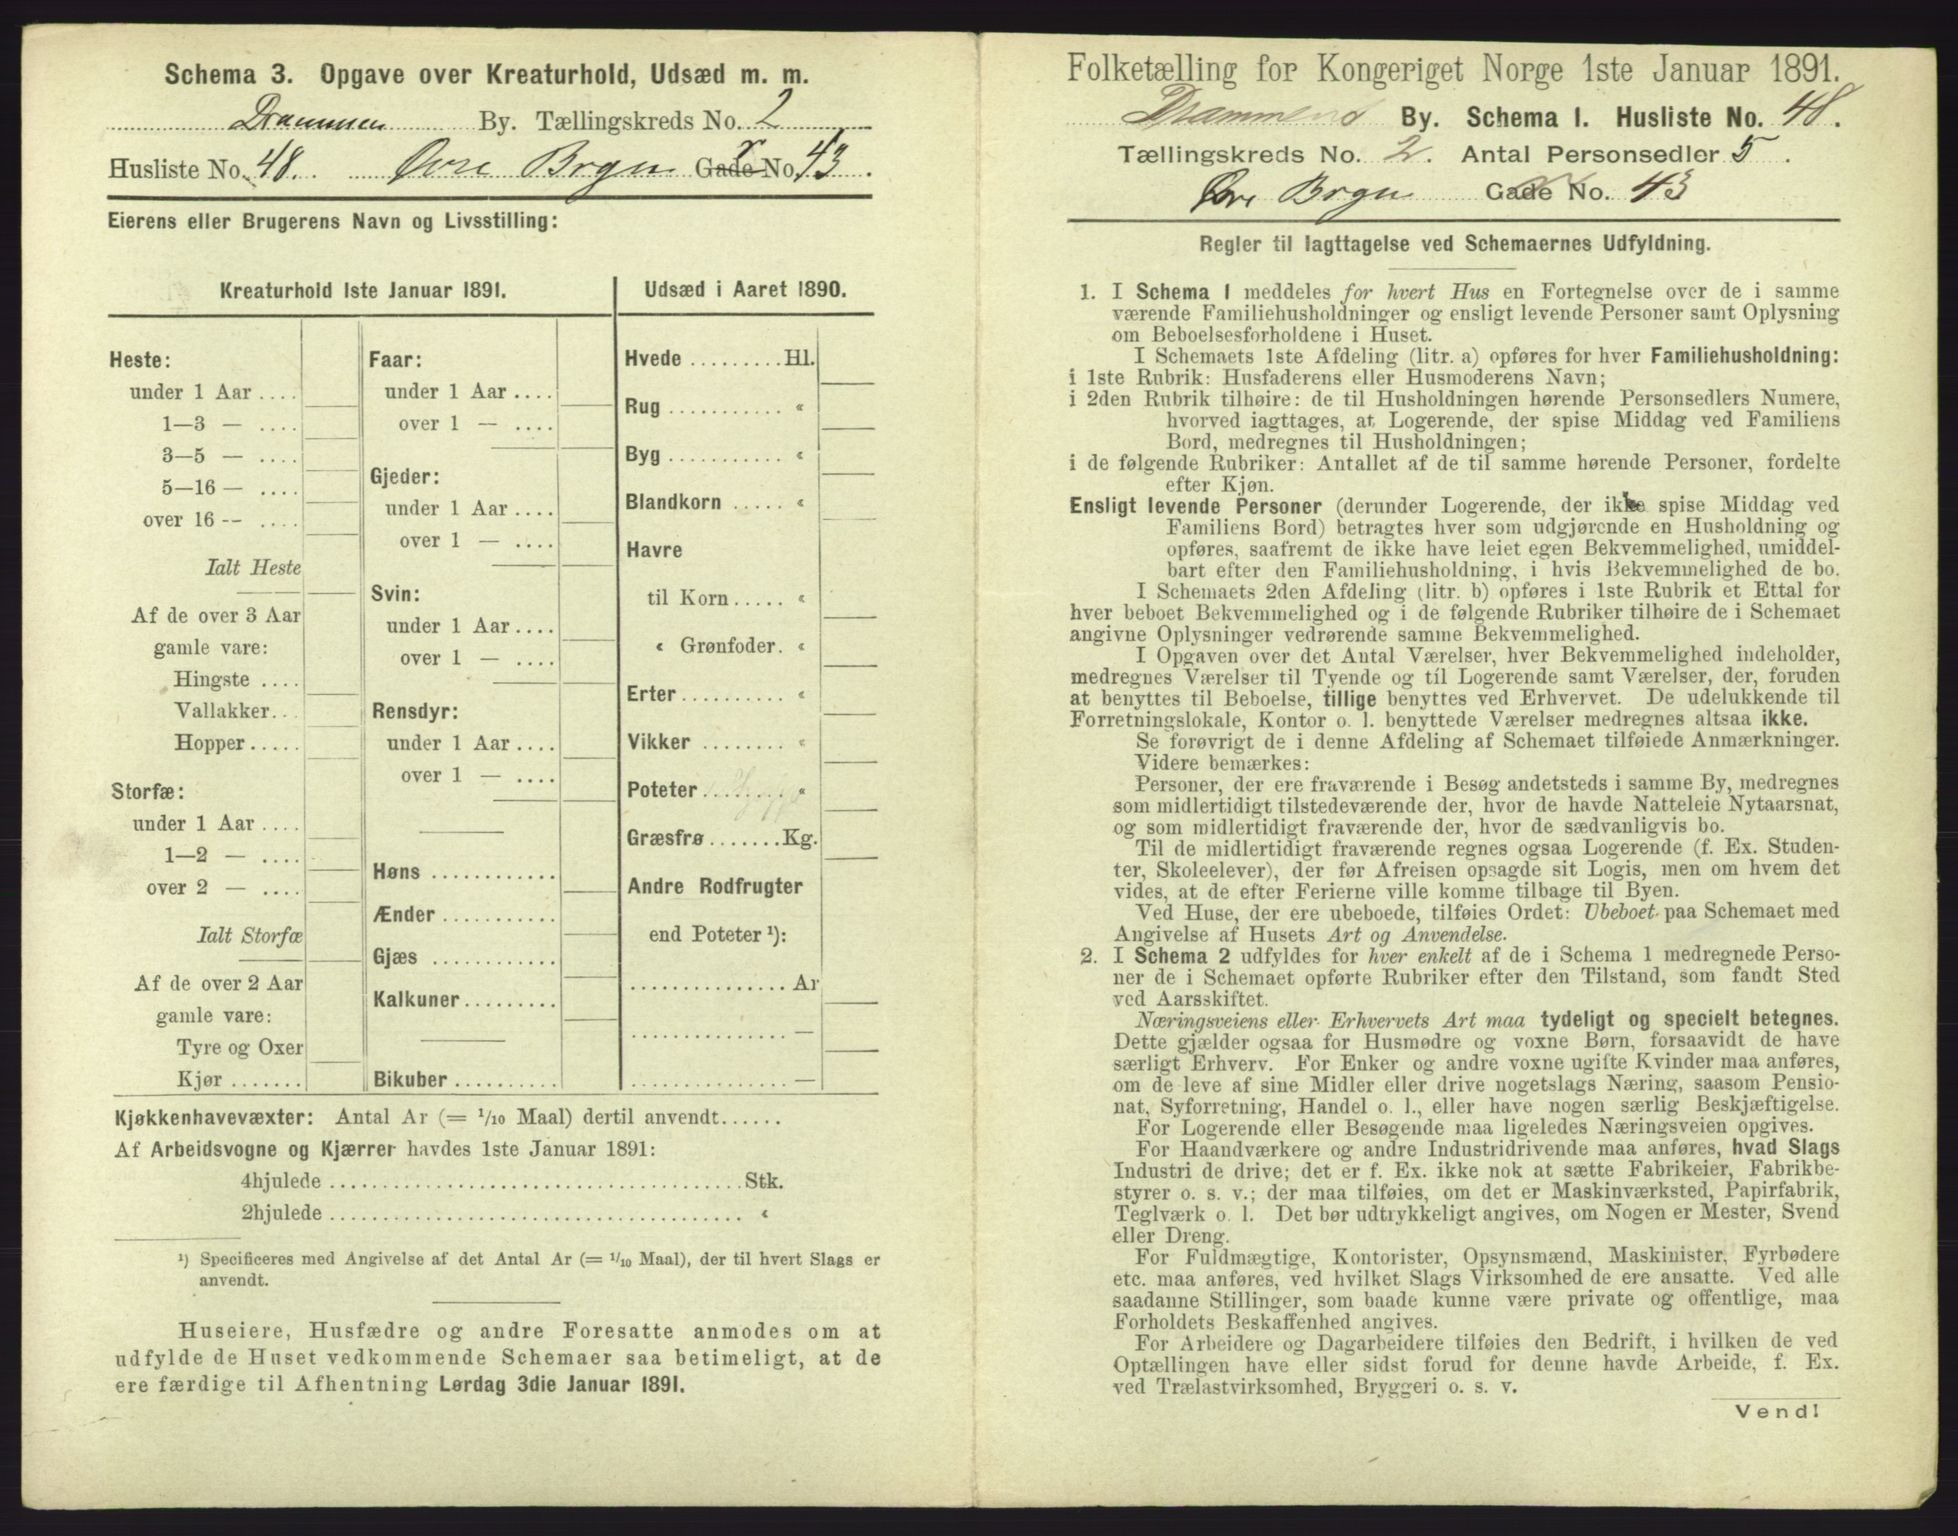 Schema 3. Opgave over Kreaturhold, Udsæd m. m.
Drammen By. Tællingskreds No. 2
Husliste No. 48. Øvre Brgn Gade No. 43.
Eierens eller Brugerens Navn og Livsstilling:
Kreaturhold 1ste Januar 1891.
Heste:
under 1 Aar ....
1—3 — ....
3—5 — ....
5—16 — ....
over 16 -- ....
Ialt Heste
Af de over 3 Aar
gamle vare:
Hingste ....
Vallakker...
Hopper.....
Storfæ:
under 1 Aar ....
1—2 — ....
over 2 — ....
Ialt Storfæ
Af de over 2 Aar
gamle vare:
Tyre og Oxer
Kjør.......
Faar:
under 1 Aar ....
over 1 — ....
Gjeder:
under 1 Aar ....
over 1 — ....
Svin:
under 1 Aar ....
over 1 — ....
Rensdyr:
under 1 Aar ....
over 1 — ....
Høns ............
Ænder ...........
Gjæs ............
Kalkuner.........
Bikuber..........
Udsæd i Aaret 1890.
Hvede .........Hl.
Rug ........... «
Byg ........... «
Blandkorn ..... «
Havre
til Korn ..... «
« Grønfoder. «
Erter ......... «
Vikker ........ «
Poteter ....... «
Græsfrø.......Kg.
Andre Rodfrugter
end Poteter ¹):
............... Ar
............... —
............... —
Kjøkkenhavevæxter: Antal Ar (= 1/10 Maal) dertil anvendt......
Af Arbeidsvogne og Kjærrer havdes 1ste Januar 1891:
4hjulede .....................................Stk.
2hjulede ..................................... «
¹) Specificeres med Angivelse af det Antal Ar (= 1/10 Maal), der til hvert Slags er
anvendt.
Huseiere, Husfædre og andre Foresatte anmodes om at
udfylde de Huset vedkommende Schemaer saa betimeligt, at de
ere færdige til Afhentning Lørdag 3die Januar 1891.
Folketælling for Kongeriget Norge 1ste Januar 1891.
Drammens By. Schema 1. Husliste No. 48.
Tællingskreds No. 2. Antal Personsedler 5.
Øvre Brgn Gade No. 43
Regler til Iagttagelse ved Schemaernes Udfyldning.
1. I Schema 1 meddeles for hvert Hus en Fortegnelse over de i samme
værende Familiehusholdninger og ensligt levende Personer samt Oplysning
om Beboelsesforholdene i Huset.
I Schemaets 1ste Afdeling (litr. a) opføres for hver Familiehusholdning:
i 1ste Rubrik: Husfaderens eller Husmoderens Navn;
i 2den Rubrik tilhøire: de til Husholdningen hørende Personsedlers Numere,
hvorved iagttages, at Logerende, der spise Middag ved Familiens
Bord, medregnes til Husholdningen;
i de følgende Rubriker: Antallet af de til samme hørende Personer, fordelte
efter Kjøn.
Ensligt levende Personer (derunder Logerende, der ikke spise Middag ved
Familiens Bord) betragtes hver som udgjørende en Husholdning og
opføres, saafremt de ikke have leiet egen Bekvemmelighed, umiddel-
bart efter den Familiehusholdning, i hvis Bekvemmelighed de bo.
I Schemaets 2den Afdeling (litr. b) opføres i 1ste Rubrik et Ettal for
hver beboet Bekvemmelighed og i de følgende Rubriker tilhøire de i Schemaet
angivne Oplysninger vedrørende samme Bekvemmelighed.
I Opgaven over det Antal Værelser, hver Bekvemmelighed indeholder,
medregnes Værelser til Tyende og til Logerende samt Værelser, der, foruden
at benyttes til Beboelse, tillige benyttes ved Erhvervet. De udelukkende til
Forretningslokale, Kontor o. l. benyttede Værelser medregnes altsaa ikke.
Se forøvrigt de i denne Afdeling af Schemaet tilføiede Anmærkninger.
Videre bemærkes:
Personer, der ere fraværende i Besøg andetsteds i samme By, medregnes
som midlertidigt tilstedeværende der, hvor de havde Natteleie Nytaarsnat,
og som midlertidigt fraværende der, hvor de sædvanligvis bo.
Til de midlertidigt fraværende regnes ogsaa Logerende (f. Ex. Studen-
ter, Skoleelever), der før Afreisen opsagde sit Logis, men om hvem det
vides, at de efter Ferierne ville komme tilbage til Byen.
Ved Huse, der ere ubeboede, tilføies Ordet: Ubeboet paa Schemaet med
Angivelse af Husets Art og Anvendelse.
2. I Schema 2 udfyldes for hver enkelt af de i Schema 1 medregnede Perso-
ner de i Schemaet opførte Rubriker efter den Tilstand, som fandt Sted
ved Aarsskiftet.
Næringsveiens eller Erhvervets Art maa tydeligt og specielt betegnes.
Dette gjælder ogsaa for Husmødre og voxne Børn, forsaavidt de have
særligt Erhverv. For Enker og andre voxne ugifte Kvinder maa anføres,
om de leve af sine Midler eller drive nogetslags Næring, saasom Pensio-
nat, Syforretning, Handel o. l., eller have nogen særlig Beskjæftigelse.
For Logerende eller Besøgende maa ligeledes Næringsveien opgives.
For Haandværkere og andre Industridrivende maa anføres, hvad Slags
Industri de drive; det er f. Ex. ikke nok at sætte Fabrikeier, Fabrikbe-
styrer o. s. v.; der maa tilføies, om det er Maskinværksted, Papirfabrik,
Teglværk o. l. Det bør udtrykkeligt angives, om Nogen er Mester, Svend
eller Dreng.
For Fuldmægtige, Kontorister, Opsynsmænd, Maskinister, Fyrbødere
etc. maa anføres, ved hvilket Slags Virksomhed de ere ansatte. Ved alle
saadanne Stillinger, som baade kunne være private og offentlige, maa
Forholdets Beskaffenhed angives.
For Arbeidere og Dagarbeidere tilføies den Bedrift, i hvilken de ved
Optællingen have eller sidst forud for denne havde Arbeide, f. Ex.
ved Trælastvirksomhed, Bryggeri o. s. v.
Vend!